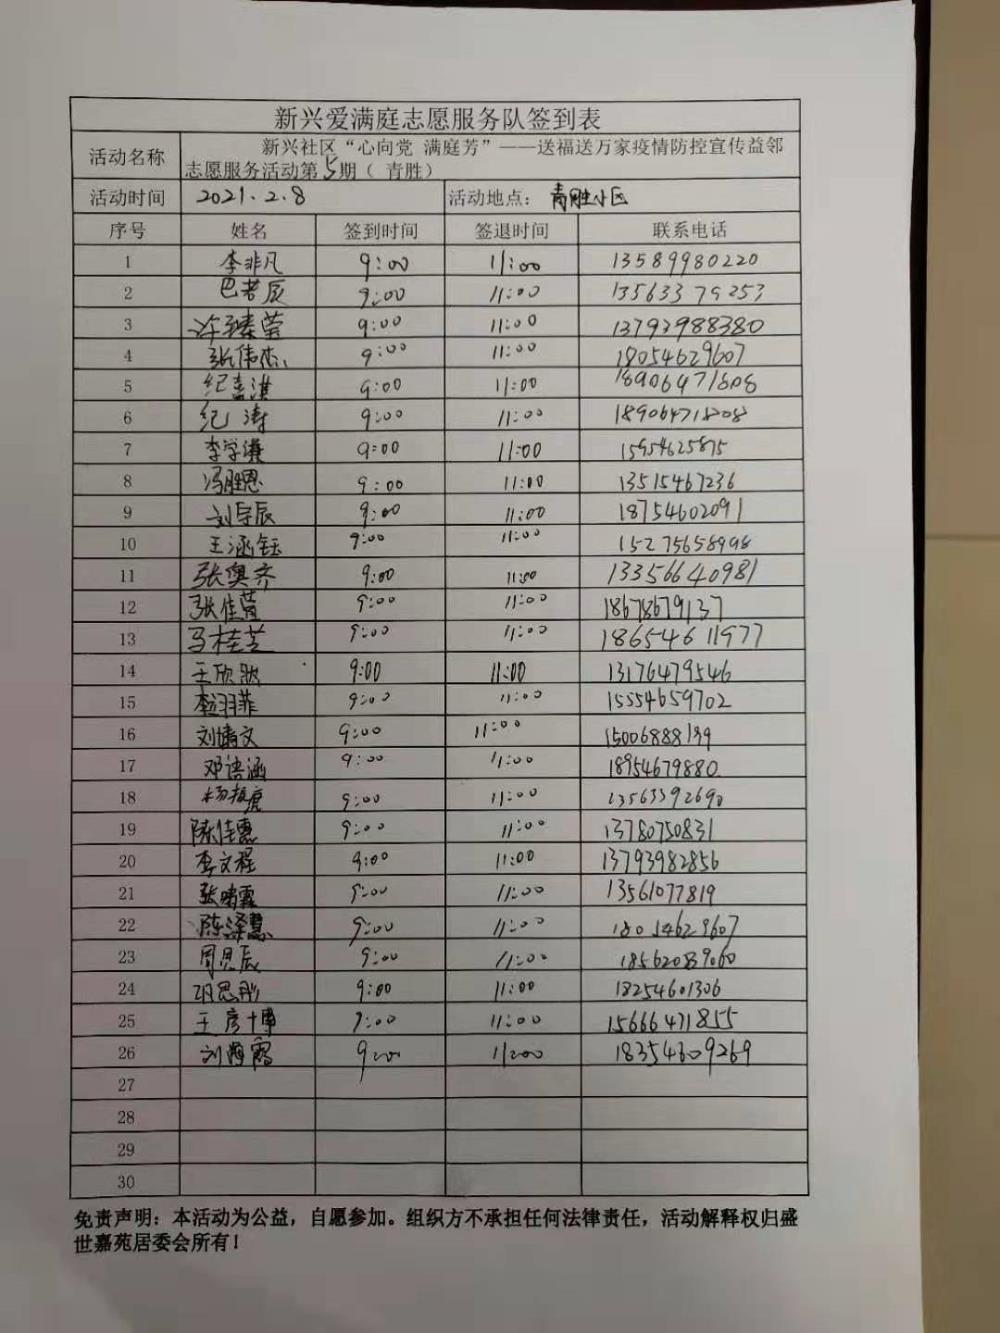 新兴爱满庭志愿服务队签到表
活动名称 新兴社区“心向党 满庭芳”——送福送万家疫情防控宣传益邻
志愿服务活动第5期（ 青胜）
活动时间 2021.2.8 活动地点： 青胜小区
序号 姓名 签到时间 签退时间 联系电话
1 李非凡 9:00 11:00 13589980220
2 巴君辰 9:00 11:00 13563379253
3 许臻莹 9:00 11:00 13793988380
4 张伟杰 9:00 11:00 18054629607
5 纪嘉淇 9:00 11:00 18906471808
6 纪涛 9:00 11:00 18906471808
7 李学谦 9:00 11:00 15954625875
8 冯胜恩 9:00 11:00 13515467236
9 刘宇辰 9:00 11:00 18754602091
10 王涵钰 9:00 11:00 15275658998
11 张奥齐 9:00 11:00 13356640981
12 张佳萱 9:00 11:00 18678679137
13 马桂芝 9:00 11:00 18654611977
14 王欣然 9:00 11:00 13176479546
15 李羽菲 9:00 11:00 15554659702
16 刘倩文 9:00 11:00
17 邓语涵 9:00 11:00 18954679880
18 9:00 11:00 13563392690
19 陈佳惠 9:00 11:00 13780750831
20 李文程 9:00 11:00 13793982856
21 张晴霖 9:00 11:00 13561077819
22 陈泽慧 9:00 11:00 18054629607
23 周昱辰 9:00 11:00 18562089060
24 巩思彤 9:00 11:00 18254601306
25 王彦博 9:00 11:00 15666471855
26 刘海霞 9:00 11:00 18354609269
27
28
29
30
免责声明：本活动为公益，自愿参加。组织方不承担任何法律责任，活动解释权归盛
世嘉苑居委会所有！